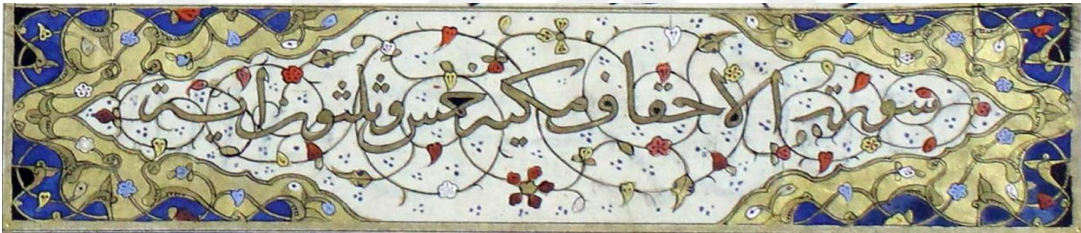 سورة الاحقاف مكية خمس وثلثون اية